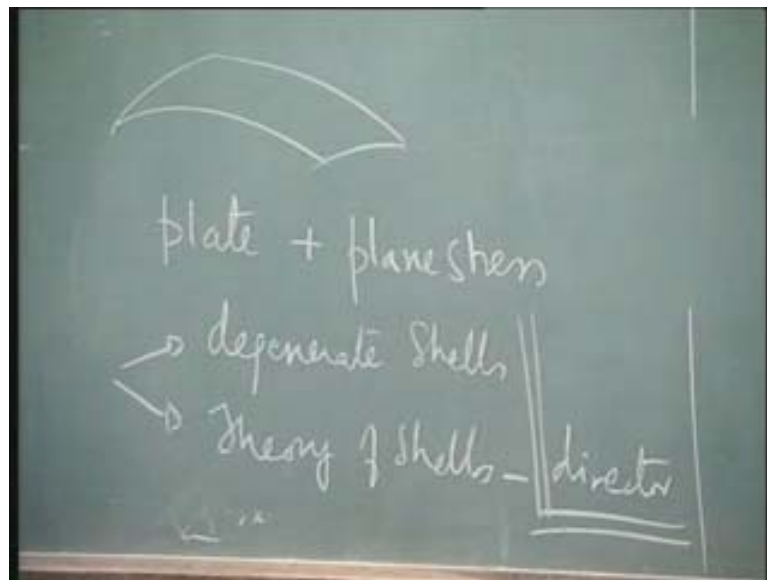 plate + plane stress
degenerate Shells
Theory of Shells - director